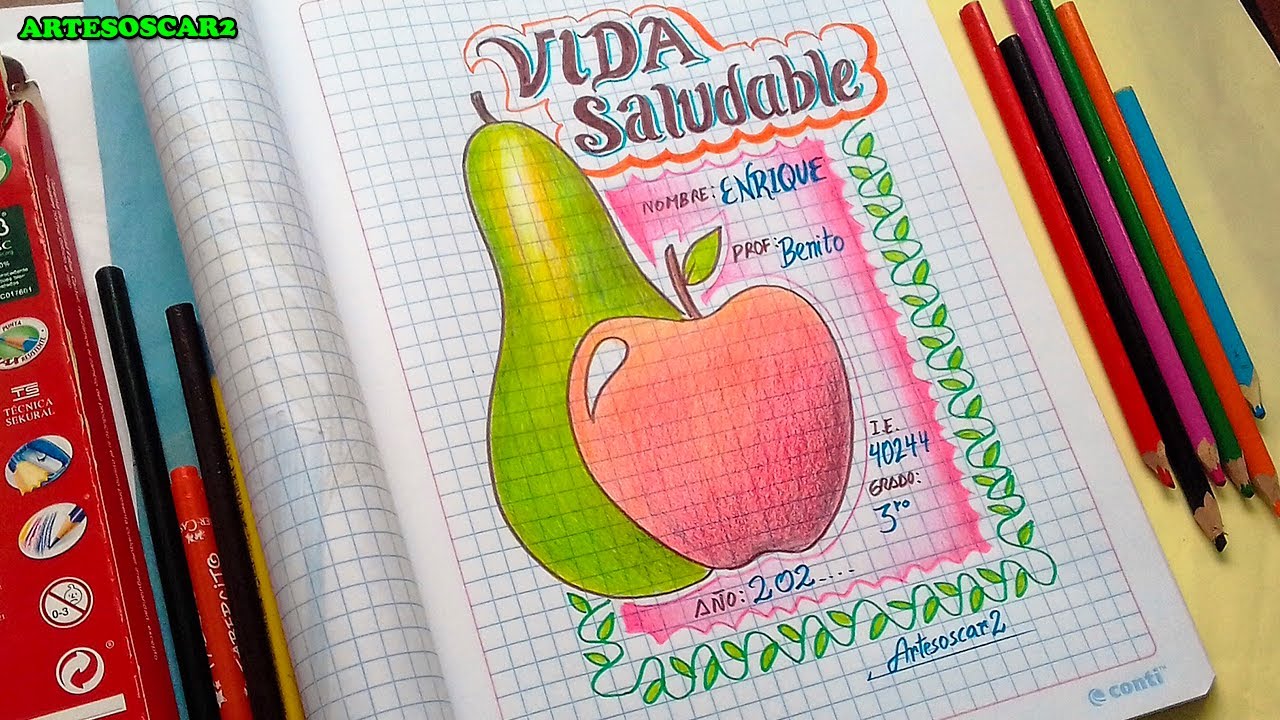 ARTESOSCAR2
VIDA
Saludable
NOMBRE: ENRIQUE
PROF: Benito
I.E.
40244
GRADO:
3ro
AÑO: 202....
Artesoscar2
conti™
TS
TÉCNICA
SEKURAL
PUNTA
0-3
C017601